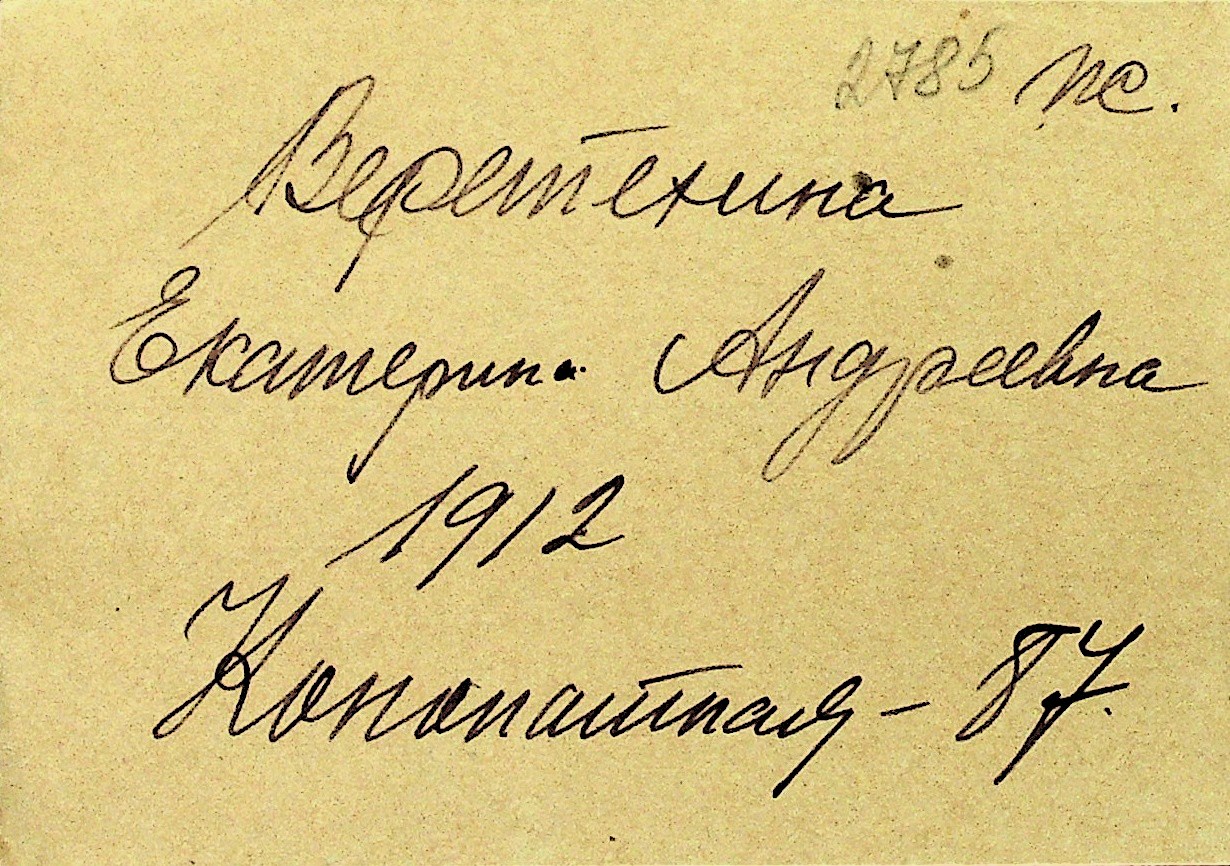 2785 пс.
Веретехина
Екатерина Андреевна
1912
Конопатная - 87.